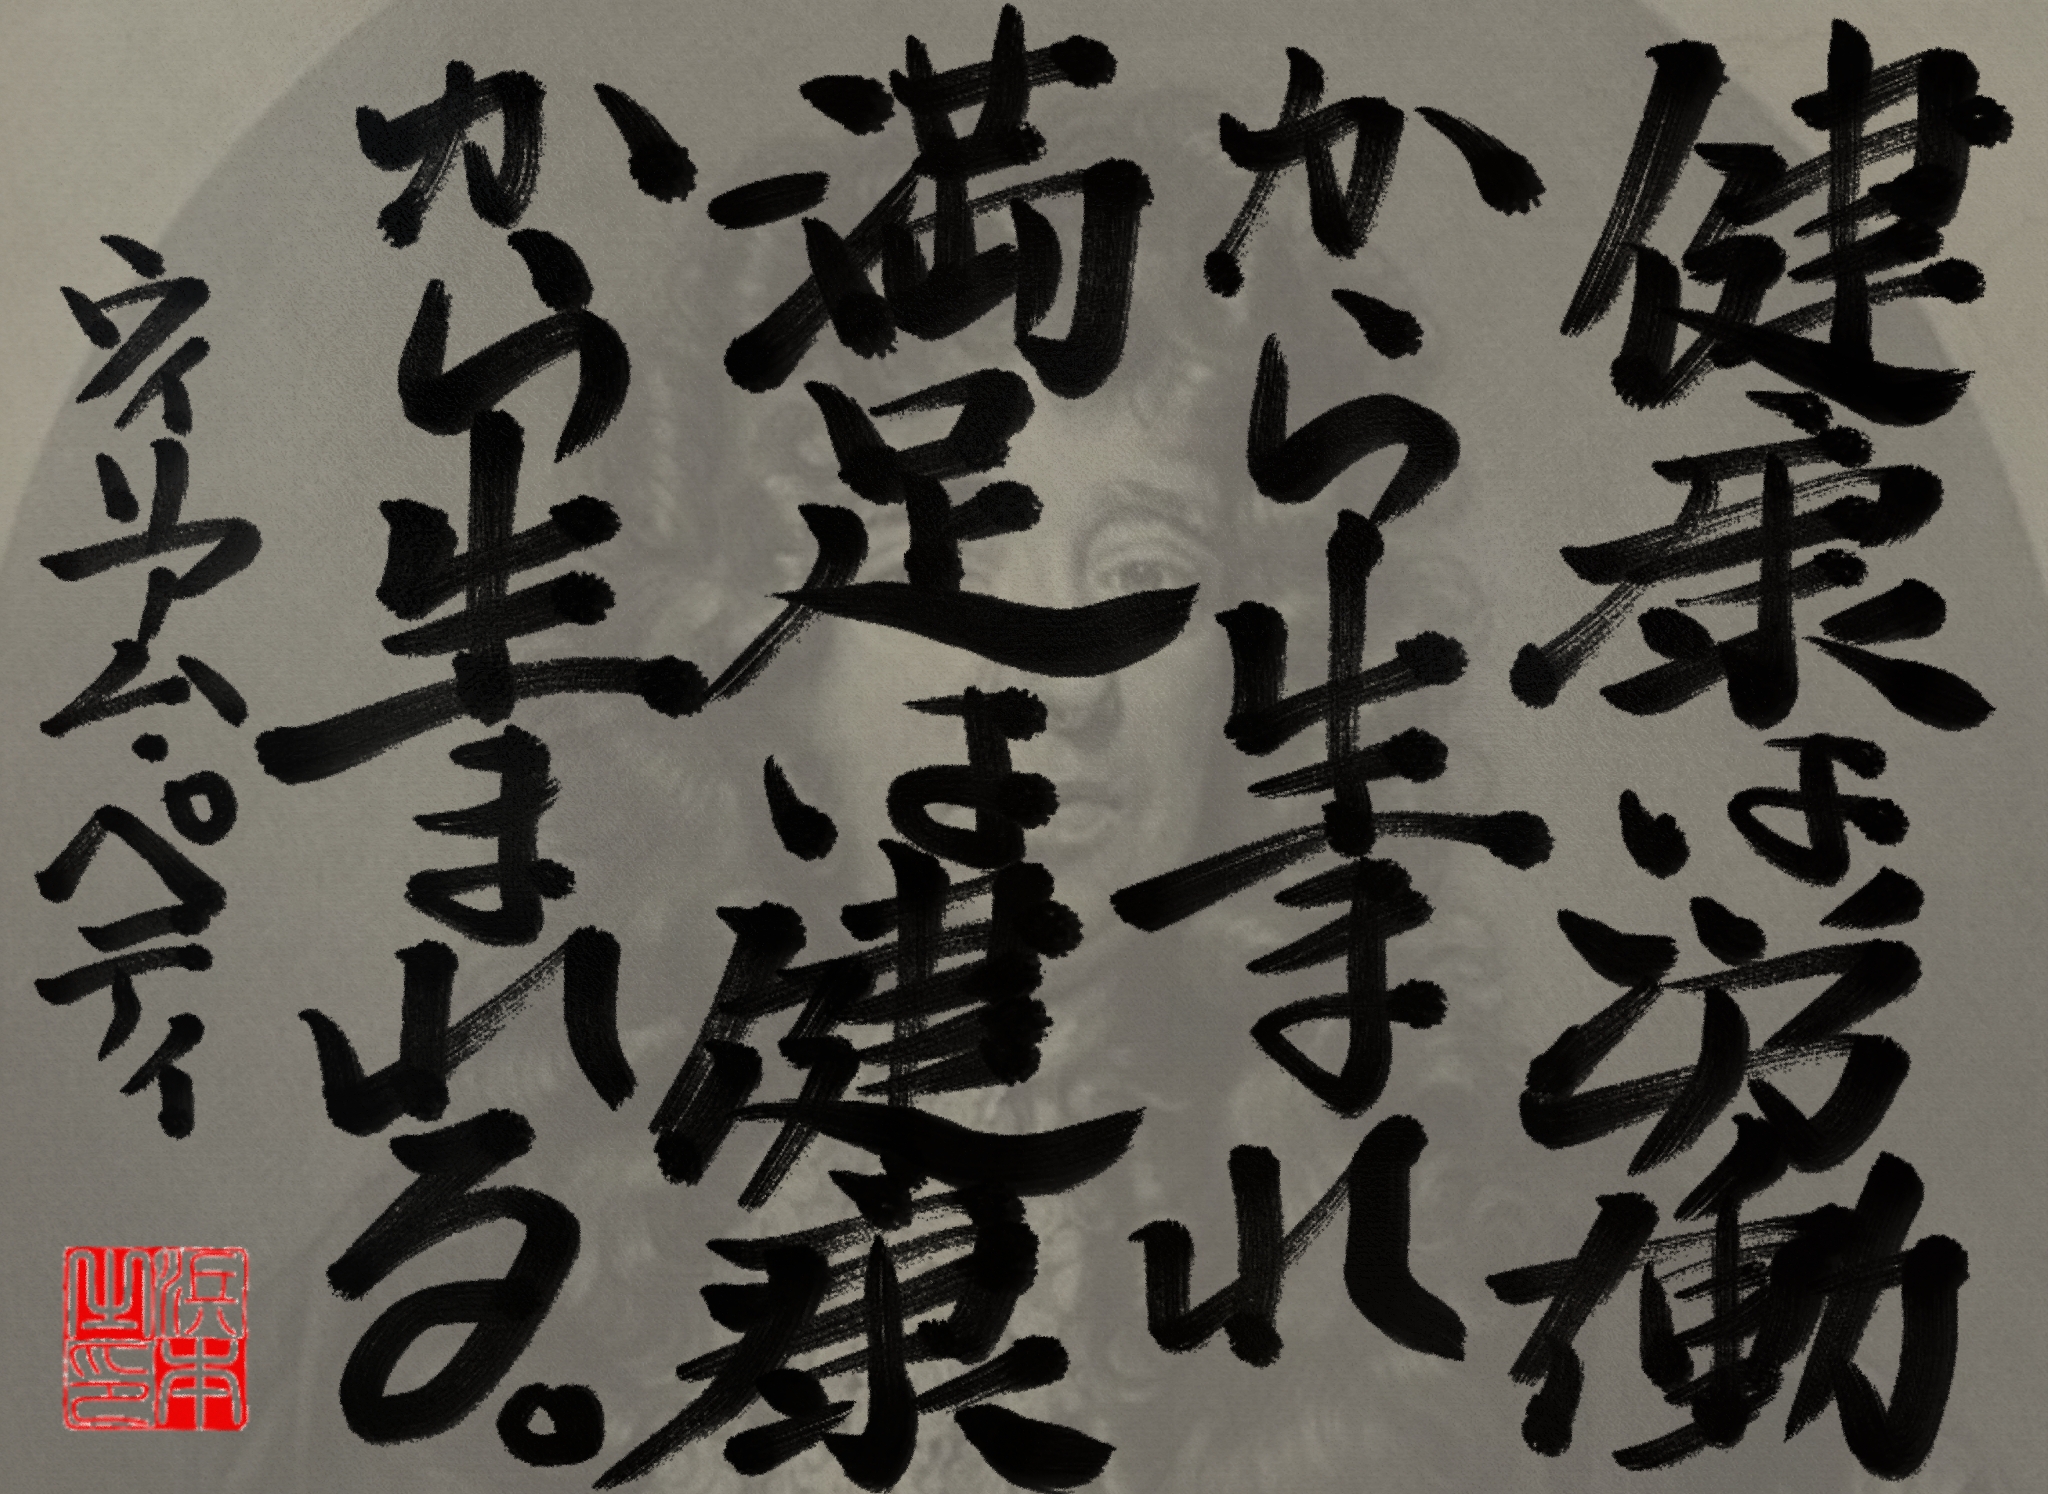 健康は労働
から生まれ
満足は健康
から生まれる。
ウィリアム・ペティ
浜本之印